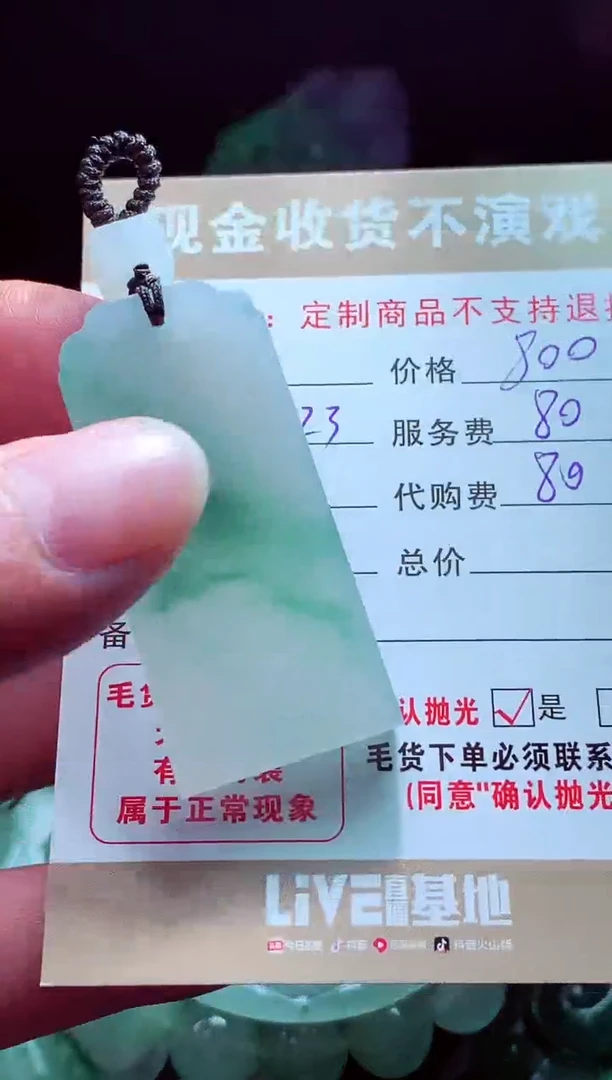 现金收货不演戏
：定制商品不支持退
价格 800
23 服务费 80
代购费 80
总价
备
毛货
认抛光 ☑是
有 裂
毛货下单必须联系
属于正常现象
(同意"确认抛光
LiVE直播基地
今日头条 抖音 西瓜视频 抖音火山版